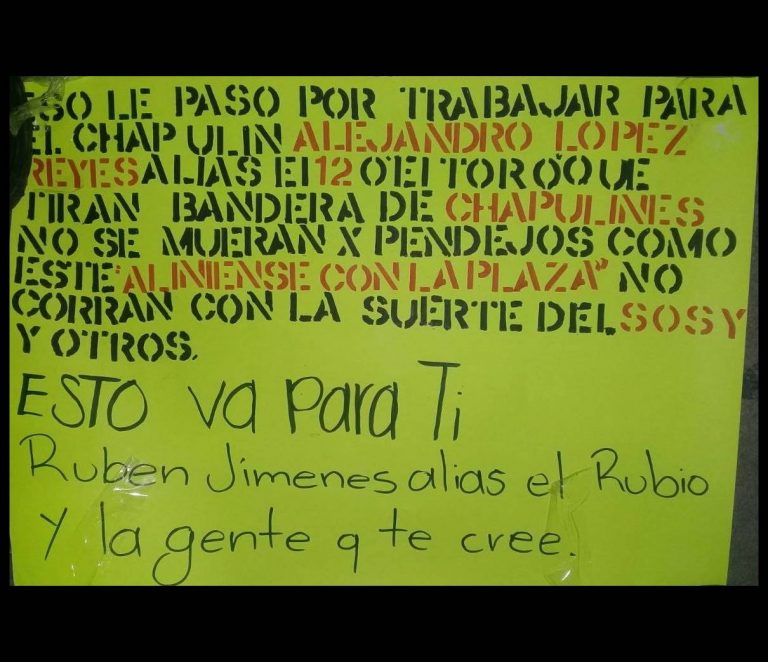 ESO LE PASO POR TRABAJAR PARA
EL CHAPULIN ALEJANDRO LOPEZ
REYES ALIAS El 12 O El TORO QUE
TIRAN BANDERA DE CHAPULINES
NO SE MUERAN X PENDEJOS COMO
ESTE "ALINIENSE CON LA PLAZA" NO
CORRAN CON LA SUERTE DEL SOSY
Y OTROS.
ESTO va para Ti
Ruben Jimenes alias el Rubio
Y la gente q te cree.